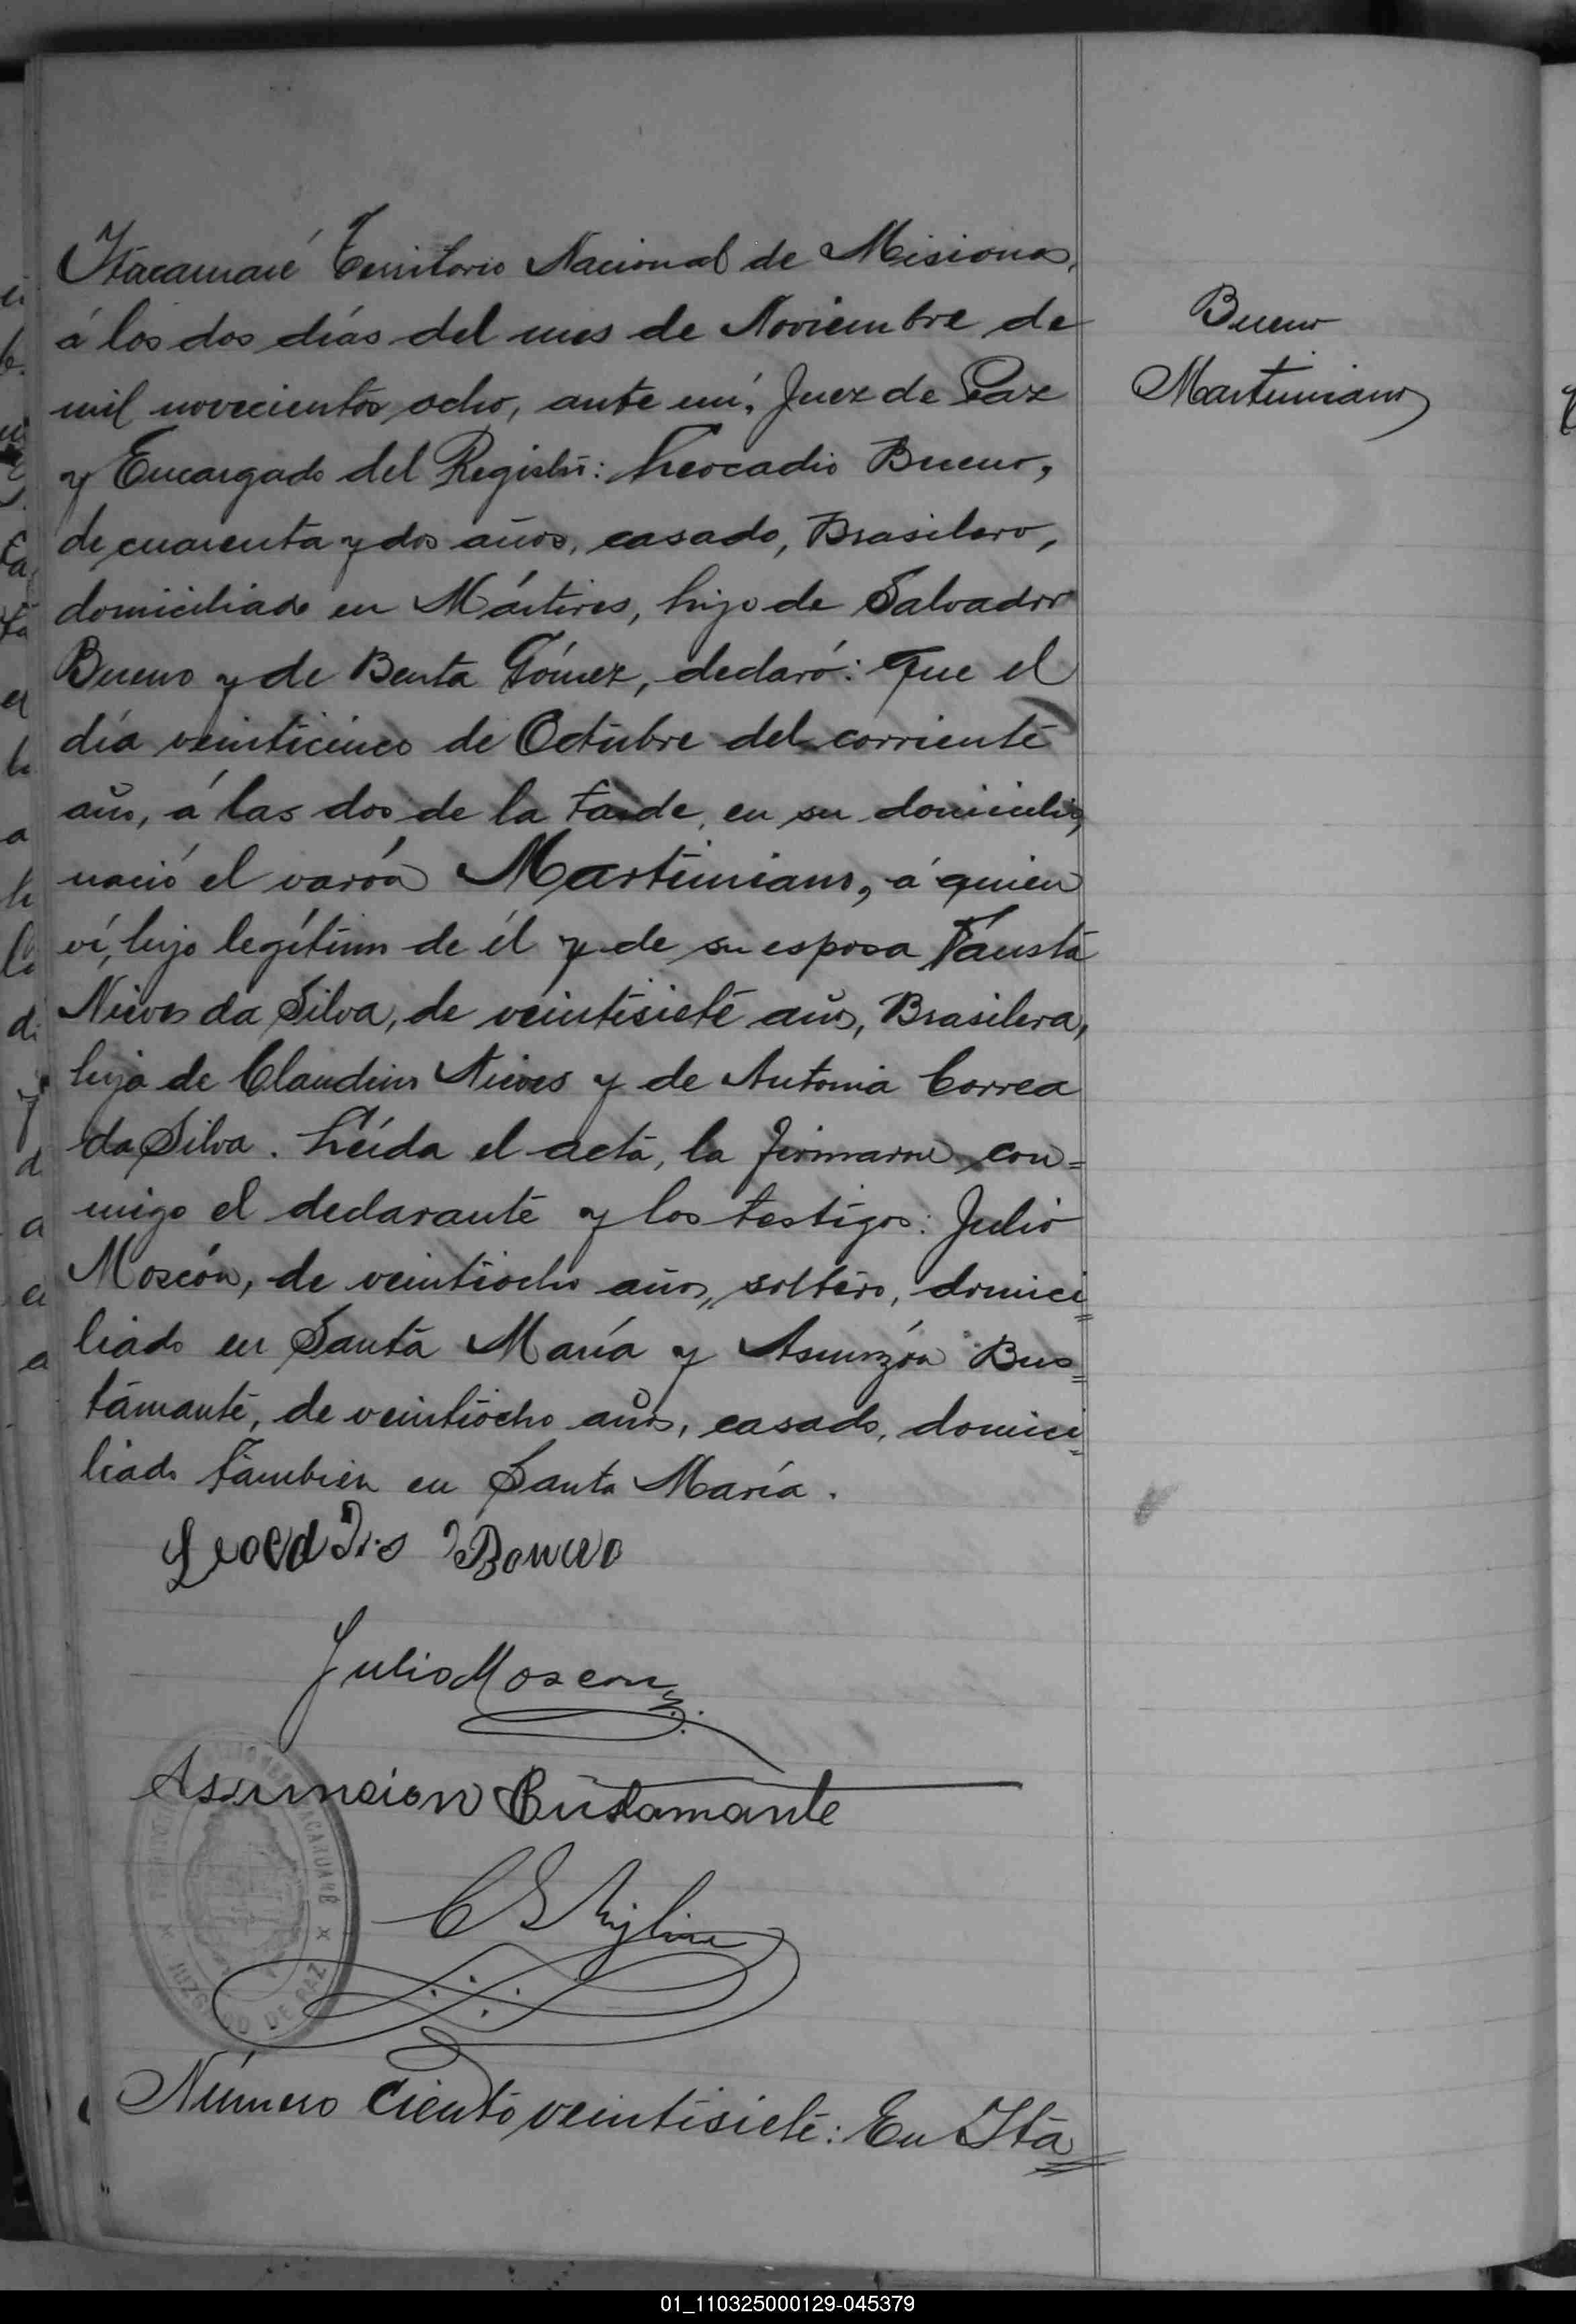 Itacaruaré Territorio Nacional de Misiones,
á los dos días del mes de Noviembre de
mil novecientos ocho, ante mí, Juez de Paz
y Encargado del Registro: Leocadio Bueno,
de cuarenta y dos años, casado, Brasilero,
domiciliado en Mártires, hijo de Salvador
Bueno y de Benta Gómez, declaró: Que el
día veinticinco de Octubre del corriente
año, á las dos de la tarde, en su domicilio,
nació el varón Martiniano, á quien
ví, hijo legítimo de él y de su esposa Fausta
Nieves da Silva, de veintisiete años, Brasilera,
hija de Claudino Nieves y de Antonia Correa
da Silva. Leída el acta, la firmaron con=
migo el declarante y los testigos: Julio
Moscón, de veintiocho años, soltero, domici=
liado en Santa María y Asunzión Bus=
tamante, de veintiocho años, casado, domici=
liado también en Santa María.
Julio Moscon
Asuncion Bustamante
JUZGADO DE PAZ
Número ciento veintisiete: En Ita=
Bueno
Martiniano
01_110325000129-045379